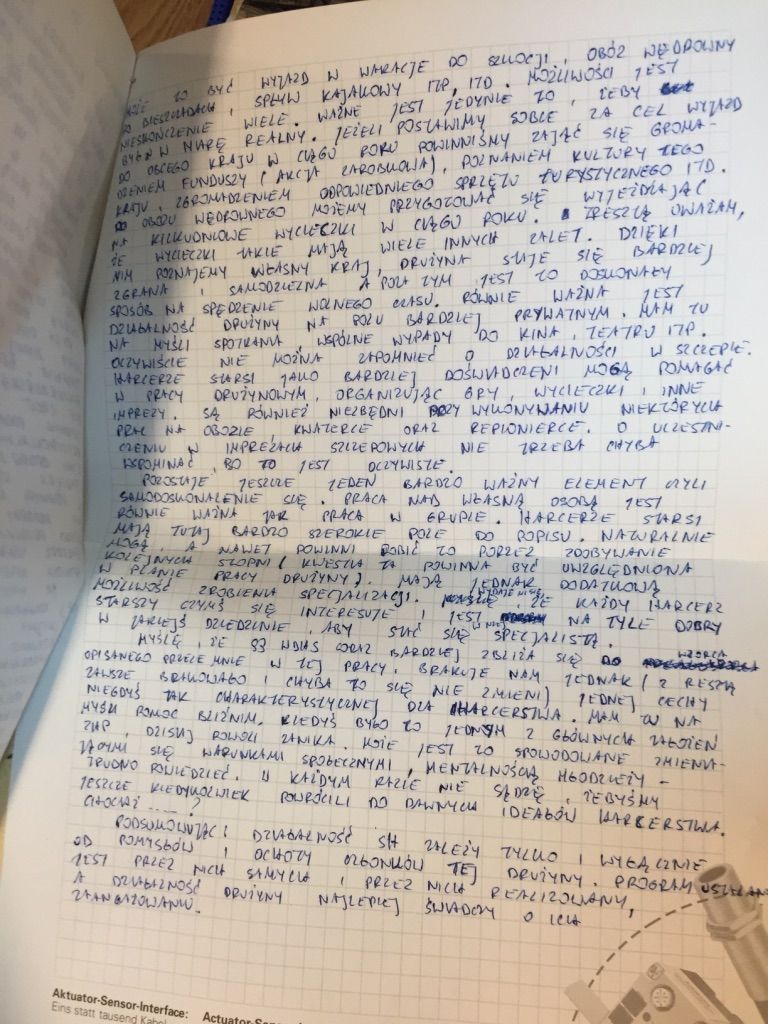 MOŻE TO BYĆ WYJAZD W WAKACJE DO SZKOCJI, OBÓZ WĘDROWNY
PO BIESZCZADACH, SPŁYW KAJAKOWY ITP, ITD. MOŻLIWOŚCI JEST
NIESKOŃCZENIE WIELE. WAŻNE JEST JEDYNIE TO, ŻEBY
BYŁ W MIARĘ REALNY. JEŻELI POSTAWIMY SOBIE ZA CEL WYJAZD
DO OBCEGO KRAJU W CIĄGU ROKU POWINNIŚMY ZAJĄĆ SIĘ GROMA-
DZENIEM FUNDUSZY (AKCJA ZAROBKOWA), POZNANIEM KULTURY TEGO
KRAJU, ZGROMADZENIEM ODPOWIEDNIEGO SPRZĘTU TURYSTYCZNEGO ITD.
DO OBOZU WĘDROWNEGO MOŻEMY PRZYGOTOWAĆ SIĘ WYJEŻDŻAJĄC
NA KILKUDNIOWE WYCIECZKI W CIĄGU ROKU. Z RESZTĄ UWAŻAM,
ŻE WYCIECZKI TAKIE MAJĄ WIELE INNYCH ZALET. DZIĘKI
NIM POZNAJEMY WŁASNY KRAJ, DRUŻYNA STAJE SIĘ BARDZIEJ
ZGRANA I SAMODZIELNA A POZA TYM JEST TO DOSKONAŁY
SPOSÓB NA SPĘDZENIE WOLNEGO CZASU. RÓWNIE WAŻNA JEST
DZIAŁALNOŚĆ DRUŻYNY NA POLU BARDZIEJ PRYWATNYM. MAM TU
NA MYŚLI SPOTKANIA, WSPÓLNE WYPADY DO KINA, TEATRU ITP.
OCZYWIŚCIE NIE MOŻNA ZAPOMNIEĆ O DZIAŁALNOŚCI W SZCZEPIE.
HARCERZE STARSI JAKO BARDZIEJ DOŚWIADCZENI MOGĄ POMAGAĆ
W PRACY DRUŻYNOWYM, ORGANIZUJĄC GRY, WYCIECZKI I INNE
IMPREZY. SĄ RÓWNIEŻ NIEZBĘDNI PRZY WYKONYWANIU NIEKTÓRYCH
PRAC NA OBOZIE, KWATERCE ORAZ REPIONIERCE. O UCZESTNI-
CZENIU W IMPREZACH SZCZEPOWYCH NIE TRZEBA CHYBA
WSPOMINAĆ, BO TO JEST OCZYWISTE.
POZOSTAJE JESZCZE JEDEN BARDZO WAŻNY ELEMENT CZYLI
SAMODOSKONALENIE SIĘ. PRACA NAD WŁASNĄ OSOBĄ JEST
RÓWNIE WAŻNA JAK PRACA W GRUPIE. HARCERZE STARSI
MAJĄ TUTAJ BARDZO SZEROKIE POLE DO POPISU. NATURALNIE
MOGĄ, A NAWET POWINNI ROBIĆ TO PORZEZ ZDOBYWANIE
KOLEJNYCH STOPNI (KWESTIA TA POWINNA BYĆ UWZGLĘDNIONA
W PLANIE PRACY DRUŻYNY). MAJĄ JEDNAK DODATKOWĄ
MOŻLIWOŚĆ ZROBIENIA SPECJALIZACJI. WYDAJE MI SIĘ, ŻE KAŻDY HARCERZ
STARSZY CZYMŚ SIĘ INTERESUJE I JEST NA TYLE DOBRY
W JAKIEJŚ DZIEDZINIE, ABY STAĆ SIĘ W NIEJ SPECJALISTĄ.
MYŚLĘ, ŻE 93 WDHS CORAZ BARDZIEJ ZBLIŻA SIĘ DO WZORCA
OPISANEGO PRZEZE MNIE W TEJ PRACY. BRAKUJE NAM JEDNAK (Z RESZTĄ
ZAWSZE BRAKOWAŁO I CHYBA TO SIĘ NIE ZMIENI) JEDNEJ CECHY
NIEGDYŚ TAK CHARAKTERYSTYCZNEJ DLA HARCERSTWA. MAM TU NA
MYŚLI POMOC BLIŹNIM. KIEDYŚ BYŁO TO JEDNYM Z GŁÓWNYCH ZAŁOŻEŃ
ZHP, DZISIAJ POWOLI ZANIKA. MOŻE JEST TO SPOWODOWANE ZMIENIA-
JĄCYMI SIĘ WARUNKAMI SPOŁECZNYMI, MENTALNOŚCIĄ MŁODZIEŻY -
TRUDNO POWIEDZIEĆ. W KAŻDYM RAZIE NIE SĄDZĘ, ŻEBYŚMY
JESZCZE KIEDYKOLWIEK POWRÓCILI DO DAWNYCH IDEAŁÓW HARCERSTWA.
CHOCIAŻ .....?
PODSUMOWUJĄC: DZIAŁALNOŚĆ SH ZALEŻY TYLKO I WYŁĄCZNIE
OD POMYSŁÓW I OCHOTY CZŁONKÓW TEJ DRUŻYNY. PROGRAM USTALAN
JEST PRZEZ NICH SAMYCH I PRZEZ NICH REALIZOWANY,
A DZIAŁALNOŚĆ DRUŻYNY NAJLEPIEJ ŚWIADCZY O ICH
ZAANGAŻOWANIU.
Aktuator-Sensor-Interface: Actuator-Sens
Eins statt tausend Kabel